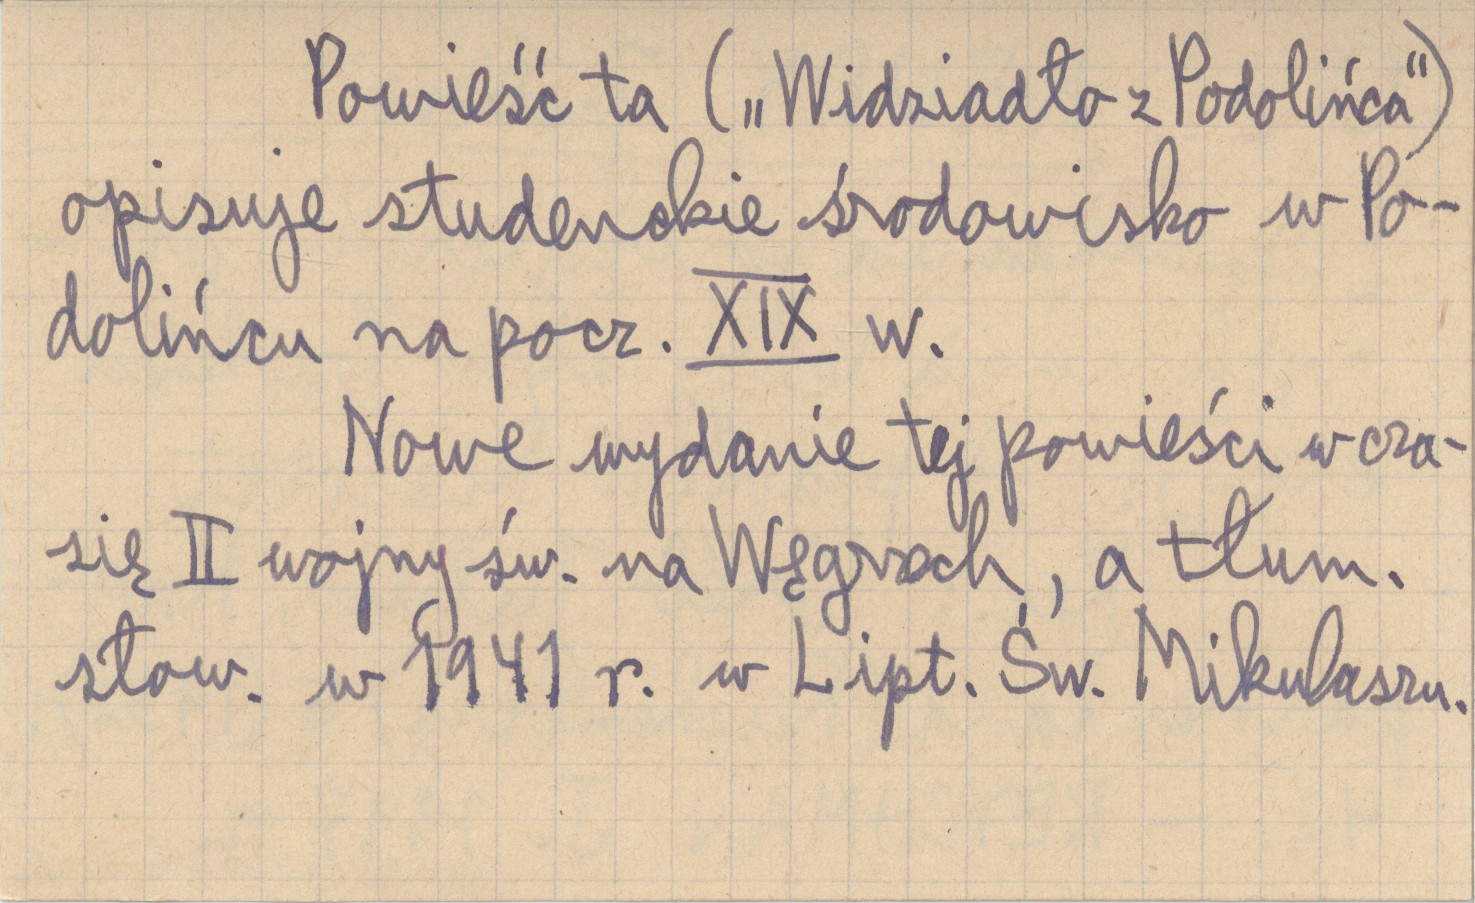 Powieść ta („Widziadło z Podolińca“)
opisuje studenckie środowisko w Po-
dolińcu na pocz. XIX w.
Nowe wydanie tej powieści w cza-
się II wojny św. na Węgrzech, a tłum.
słow. w 1941 r. w Lipt. Św. Mikulaszu.